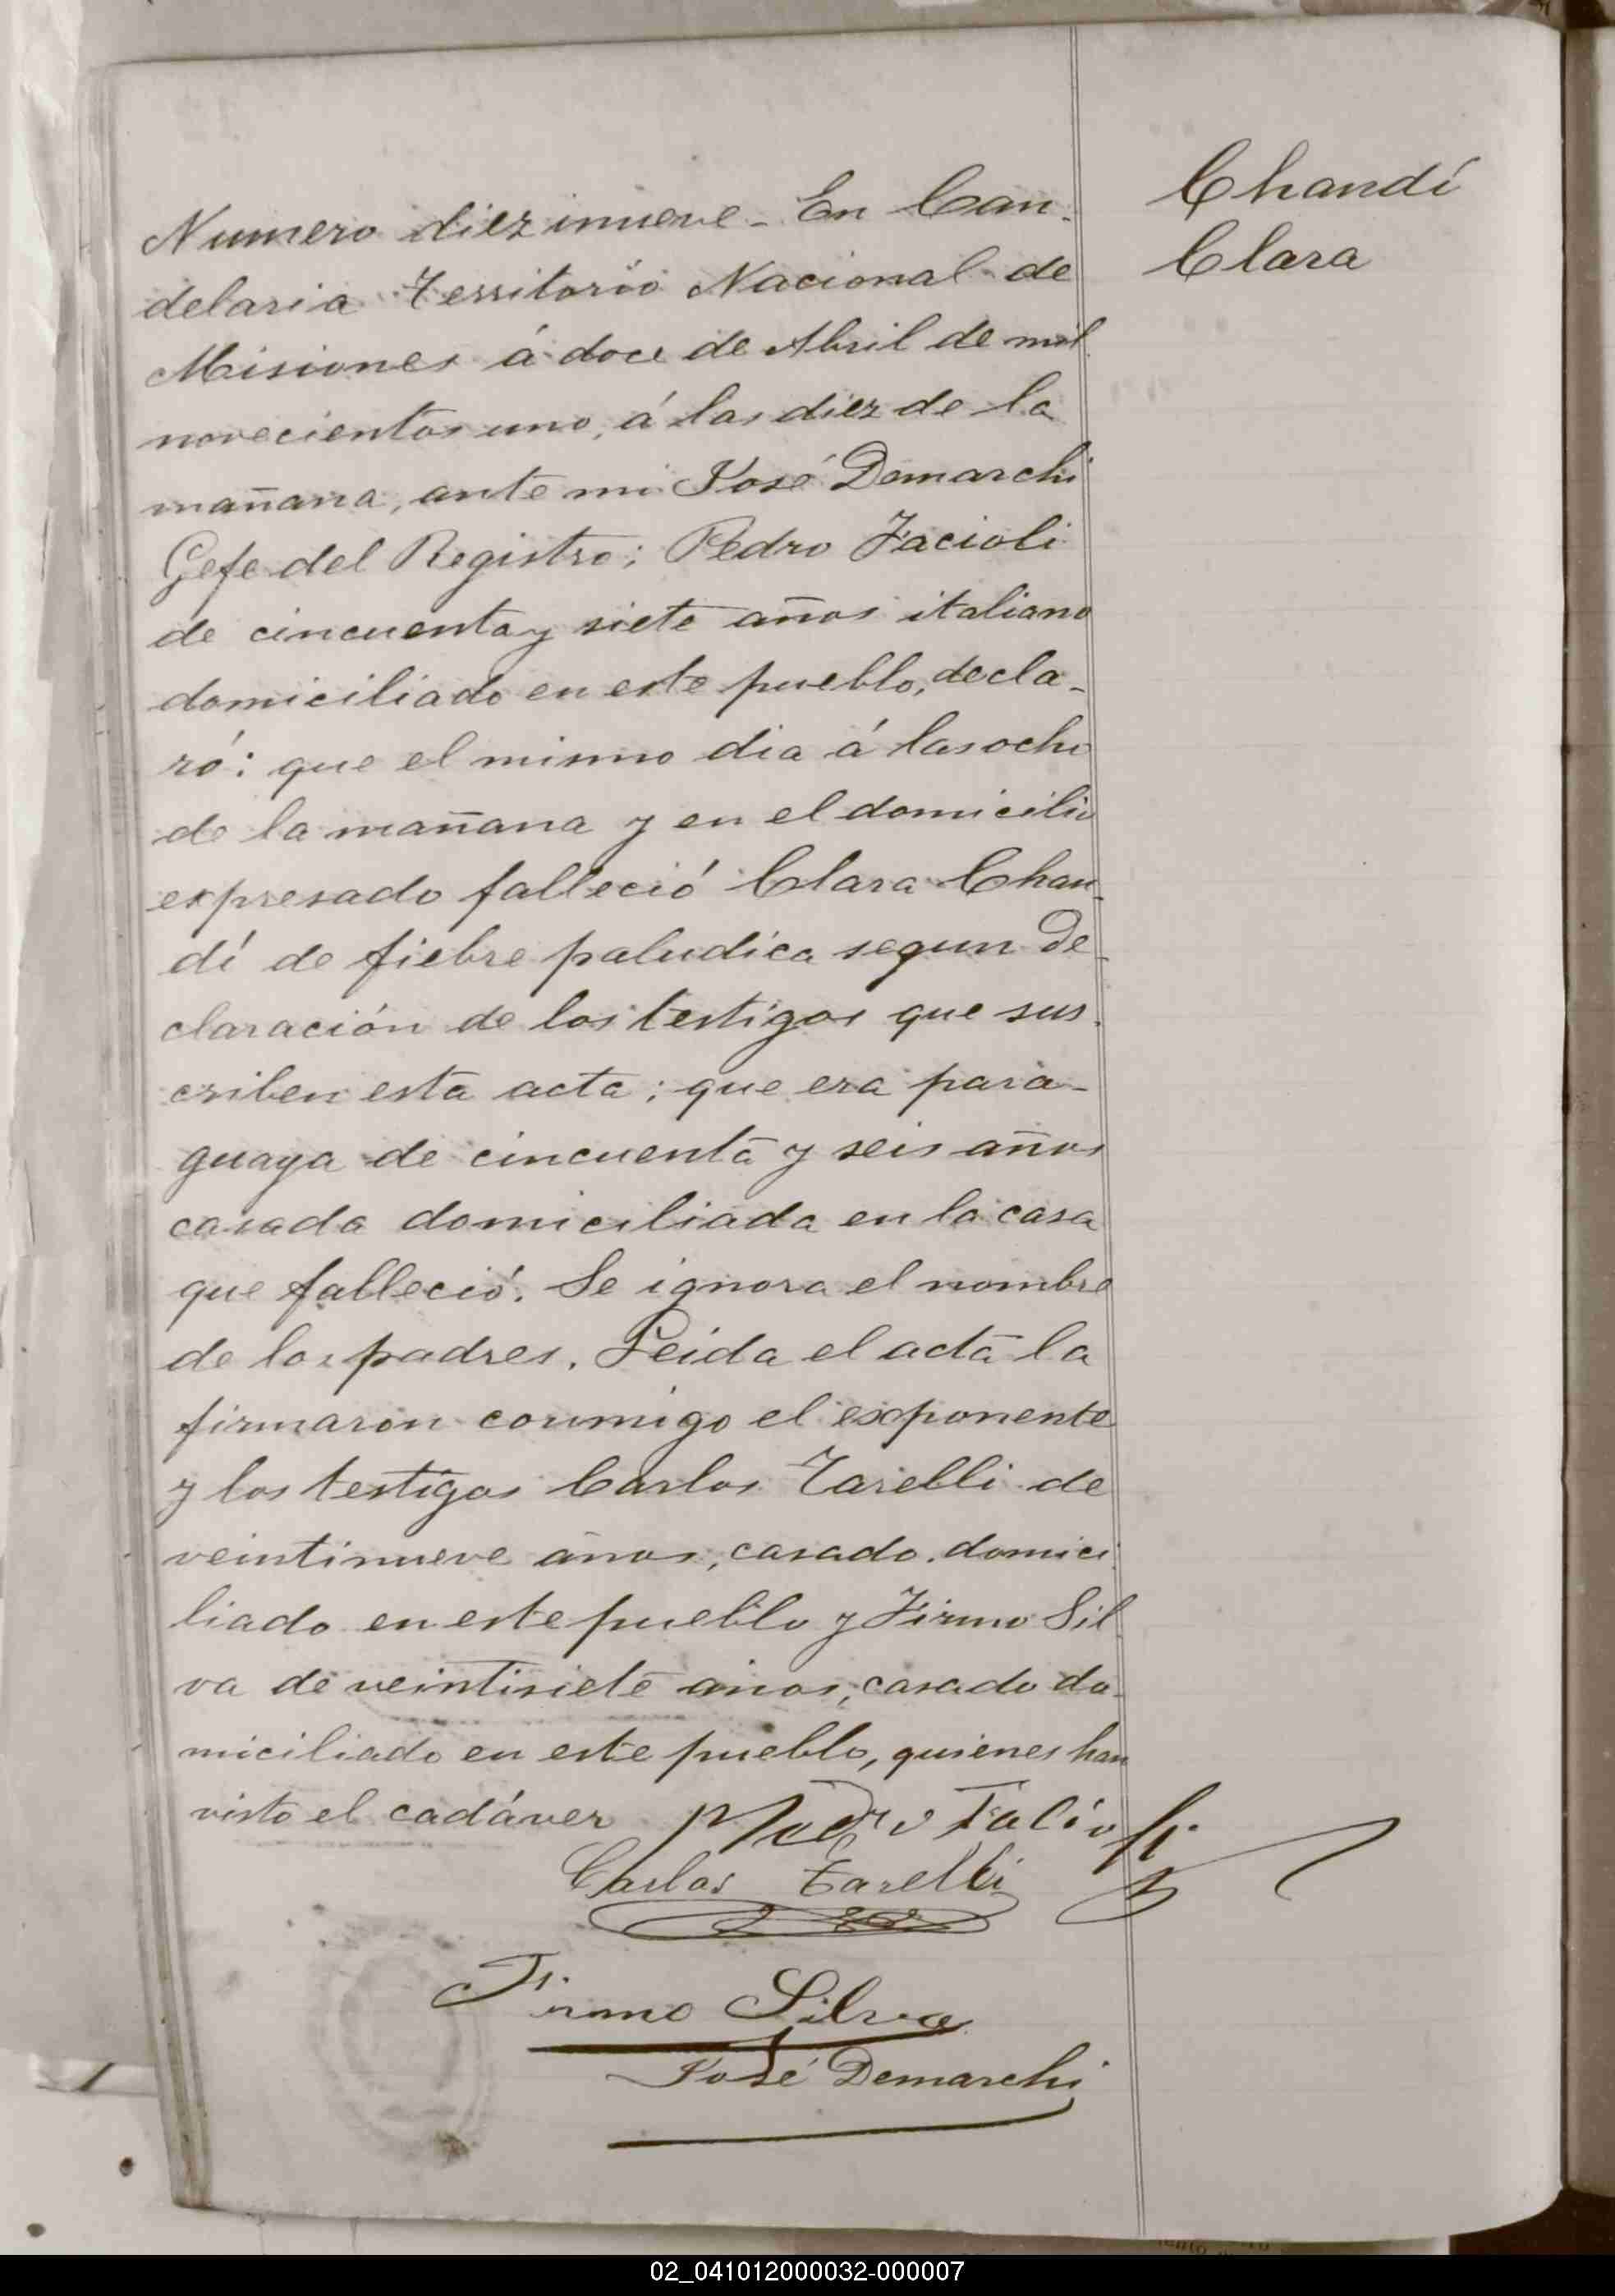 Chandí
Clara
Numero diezinueve - En Can-
delaria Territorio Nacional de
Misiones á doce de Abril de mil
novecientos uno, á las diez de la
mañana, ante mi José Demarchi
Gefe del Registro; Pedro Facioli
de cincuenta y siete años italiano
domiciliado en este pueblo, decla-
ró: que el mismo dia á las ocho
de la mañana y en el domicilio
expresado falleció Clara Chan-
dí de fiebre paludica segun De-
claración de los testigos que sus-
criben esta acta; que era para-
guaya de cincuenta y seis años
casada domiciliada en la casa
que falleció. Se ignora el nombre
de los padres. Leida el acta la
firmaron conmigo el exponente
y los testigos Carlos Tarelli de
veintinueve años, casado, domici
liado en este pueblo y Firmo Sil
va de veintisiete años, casado do-
miciliado en este pueblo, quienes han
visto el cadáver
Carlos Tarelli
Firmo Silva
José Demarchi
02_041012000032-000007